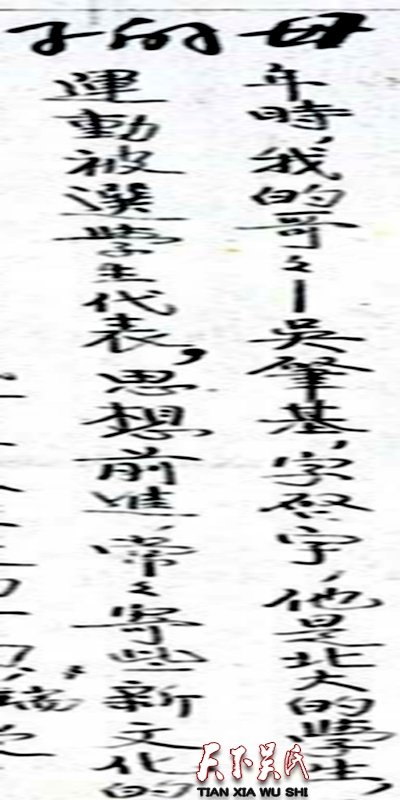 母的子
年時，我的哥々—吳肇基，字宇，他是北大的學生，
運動被選學生代表，思想前進，常々寄些新文化的
天下吴氏
TIAN XIA WU SHI